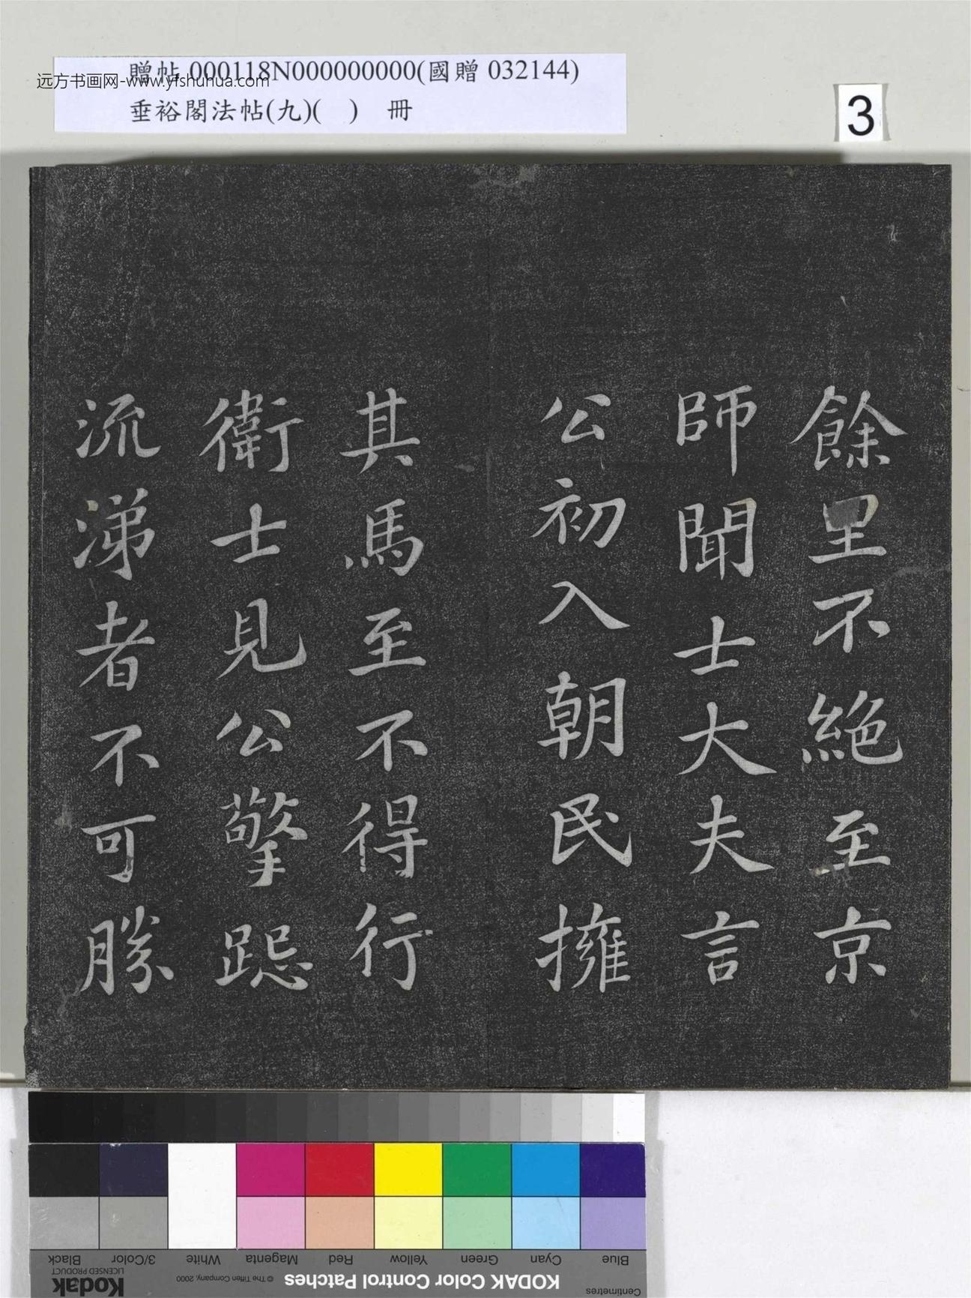 贈帖 000118N000000000(國贈 032144)
远方书画网-www.yfshuhua.com
垂裕閣法帖(九)( ) 冊
3
餘里不絕至京
師聞士大夫言
公初入朝民擁
其馬至不得行
衛士見公擎跽
流涕者不可勝
Black
3/Color
White
Magenta
Red
Yellow
Green
Cyan
Blue
Kodak
LICENSED PRODUCT
© The Tiffen Company, 2000
KODAK Color Control Patches
Centimetres